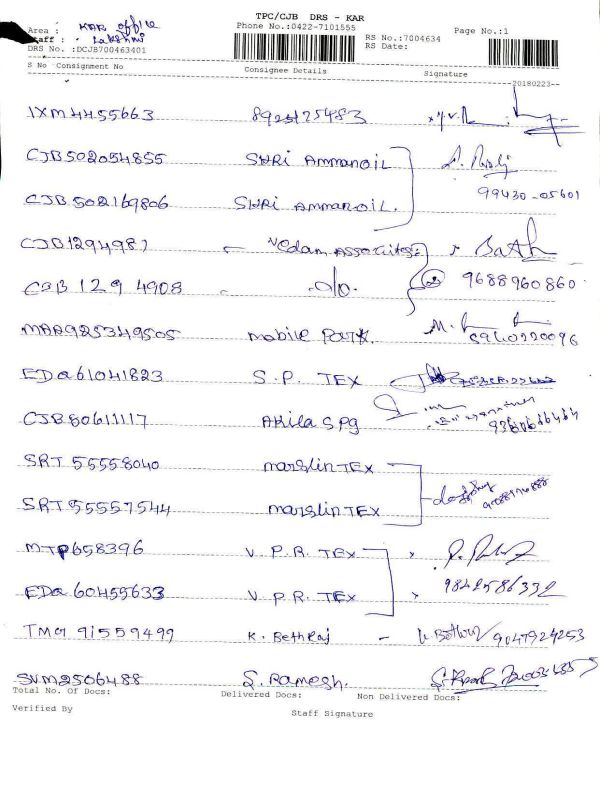 TPC/CJB DRS - KAR
Area : KAR office
Phone No.:0422-7101555
Page No.:1
Staff : Lakshmi
RS No.:7004634
DRS No. :DCJB700463401
RS Date:
S No Consignment No Consignee Details Signature
20180223
IXM4455663
CJB502054855 SHRi AmmanOiL
99430-05601
CJB502169806 SHRi AmmanOiL.
CJB1294987 Vedam Associates
CJB 129 4908 -do- 9688960860
MAA925349505 mobile Park.
EDQ61041823 S.P. TEX
CJB80611117 AKila SPg
SRT 55558040 marslin TEX
SRT 55557544 marslin TEX
MTP658396 V.P.R. TEX
EDQ 60455633 V.P.R. TEX
TMG 91559499 K. BethRaj 9047924253
SVM2506488 S. Ramesh.
Total No. Of Docs: Delivered Docs: Non Delivered Docs:
Verified By Staff Signature